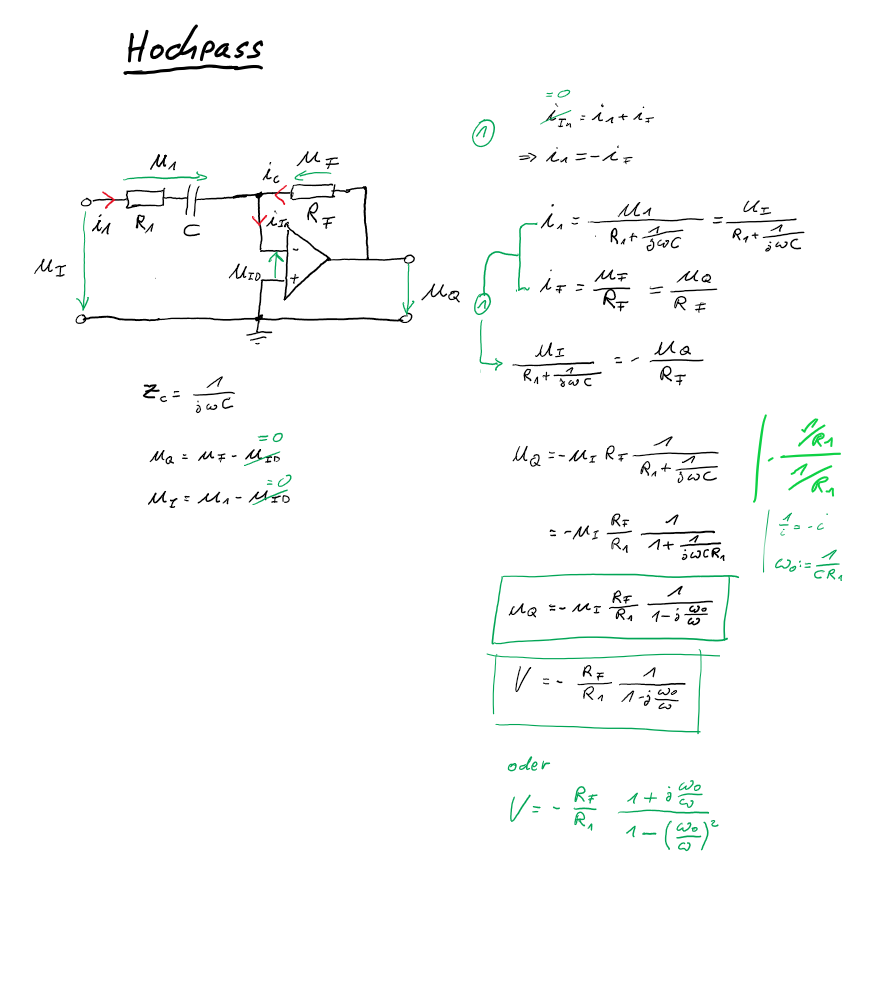 Hochpass
u₁
i_c
u_F
i₁
R₁
C
i_In
R_F
u_I
u_ID
-
+
u_Q
Z_c = 1/(jωC)
u_Q = u_F - u_ID = 0
u_I = u₁ - u_ID = 0
① i_In = i₁ + i_F
= 0
⇒ i₁ = -i_F
i₁ = u₁/(R₁ + 1/(jωC)) = u_I/(R₁ + 1/(jωC))
① i_F = u_F/R_F = u_Q/R_F
u_I/(R₁ + 1/(jωC)) = - u_Q/R_F
u_Q = -u_I R_F 1/(R₁ + 1/(jωC)) | · (1/R₁)/(1/R₁)
= -u_I R_F/R₁ 1/(1 + 1/(jωCR₁)) | 1/i = -i
ω₀ := 1/(CR₁)
u_Q = -u_I R_F/R₁ 1/(1 - j ω₀/ω)
V = - R_F/R₁ 1/(1 - j ω₀/ω)
oder
V = - R_F/R₁ (1 + j ω₀/ω)/(1 - (ω₀/ω)²)